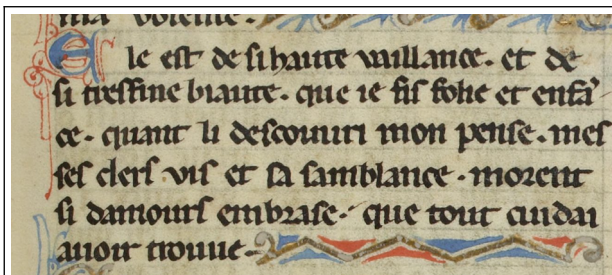 ma volente.
Ele est de si haute vaillance. et de
si tresfine biaute. que ie fis folie et enfā
ce. quant li descouuri mon pense. mes
ses clers vis et sa samblance. morent
si damours embrase. que tout cuidai
auoir trouue.